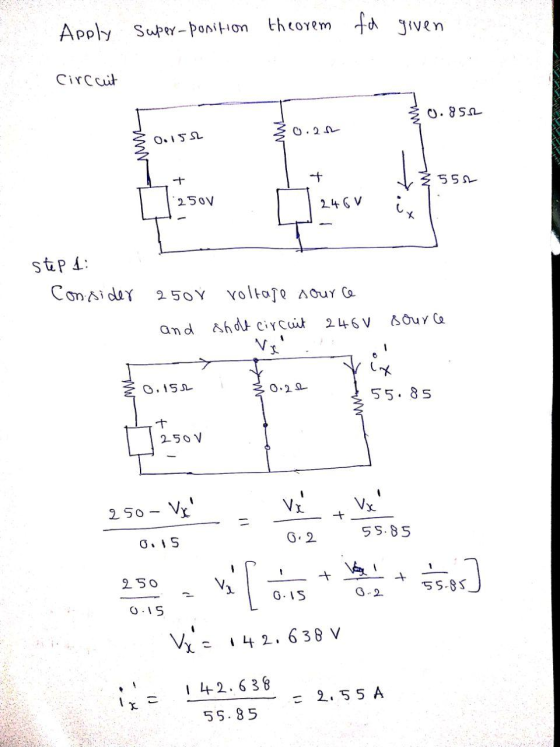 Apply Super-position theorem for given
Circuit
0.15Ω
0.2Ω
0.85Ω
55Ω
+
250V
-
+
246V
-
ix
step 1:
Consider 250V voltage source
and short circuit 246V source
Vx'
ix'
0.15Ω
0.2Ω
55.85
+
250V
-
250 - Vx' / 0.15 = Vx' / 0.2 + Vx' / 55.85
250 / 0.15 = Vx' [ 1 / 0.15 + 1 / 0.2 + 1 / 55.85 ]
Vx' = 142.638 V
ix' = 142.638 / 55.85 = 2.55 A